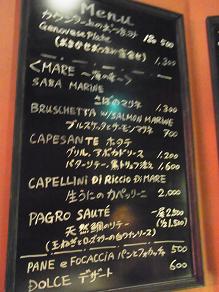 Menu
カウンター上の 500
Genovese Plate
(おまかせ 盛合せ) 1,300
<MARE ～海の幸～>
SABA MARINE
さばのマリネ 1,300
BRUSCHETTA w/SALMON MARINE
ブルスケッタとサーモンマリネ 700
CAPESANTE ホタテ
グリル、アボカドソース 1,200
バターソテー、黒トリュフ添え 1,600
CAPELLINI Di Riccio Di MARE
生うにのカペッリーニ 2,000
PAGRO SAUTÉ 一尾 2,500
天然鯛のソテー (½ 1,500)
(玉ねぎとローズマリーの白ワインソース)
PANE e FOCACCIA パンとフォカッチャ 500
DOLCE デザート 600